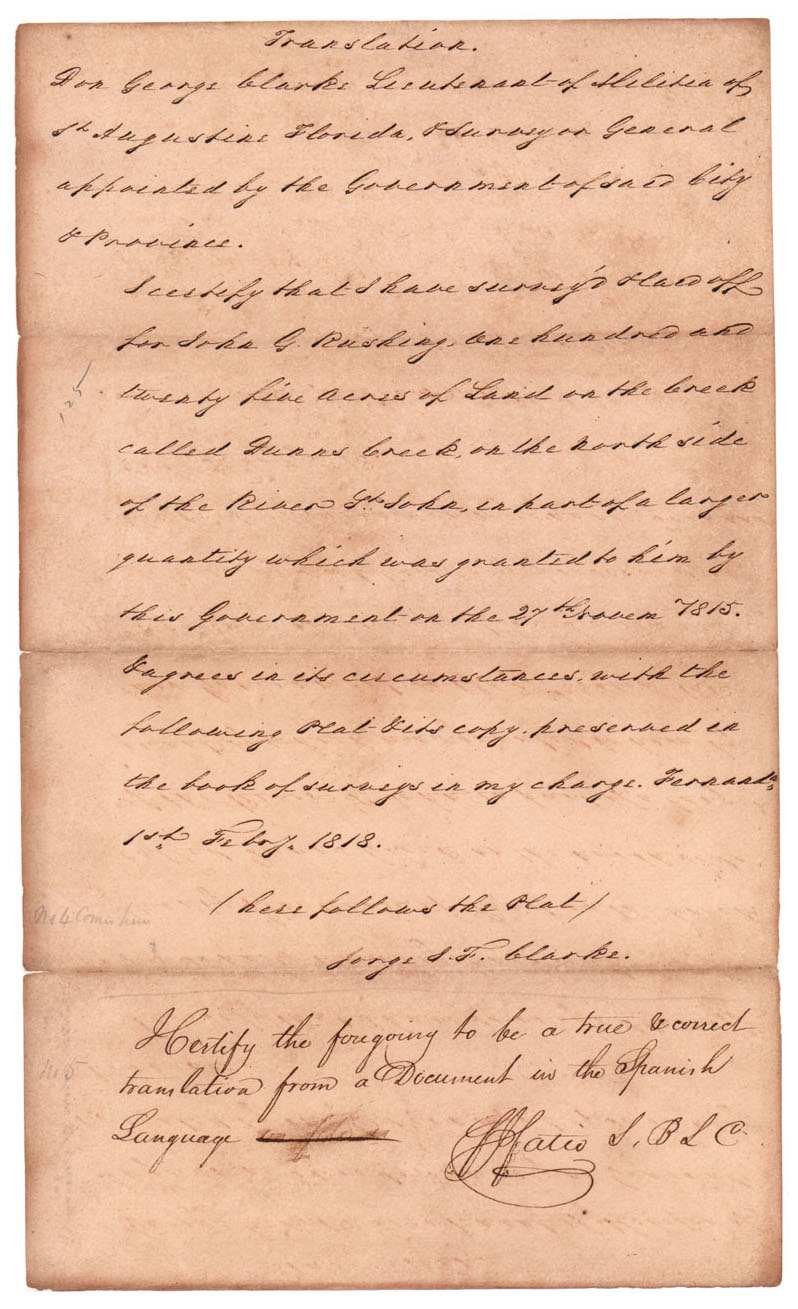 Translation.
Don George Clarke Lieutenant of Militia of
St Augustine Florida, & Surveyor General
appointed by the Government of said City
& Province.
I certify that I have survey'd & laid off
for John G. Rushing, One hundred and
125
twenty five Acres of Land on the Creek
called Dunns Creek, on the North side
of the River St. John, in part of a larger
quantity which was granted to him by
this Government on the 27th Novem 1815.
& agrees in its circumstances, with the
following Plat & its copy, preserved in
the book of surveys in my charge. Fernanda
1st. Febry. 1818.
(here follows the Plat)
Jorge J. F. Clarke.
I Certify the forgoing to be a true & correct
translation from a Document in the Spanish
No 5
Language
S. B L C